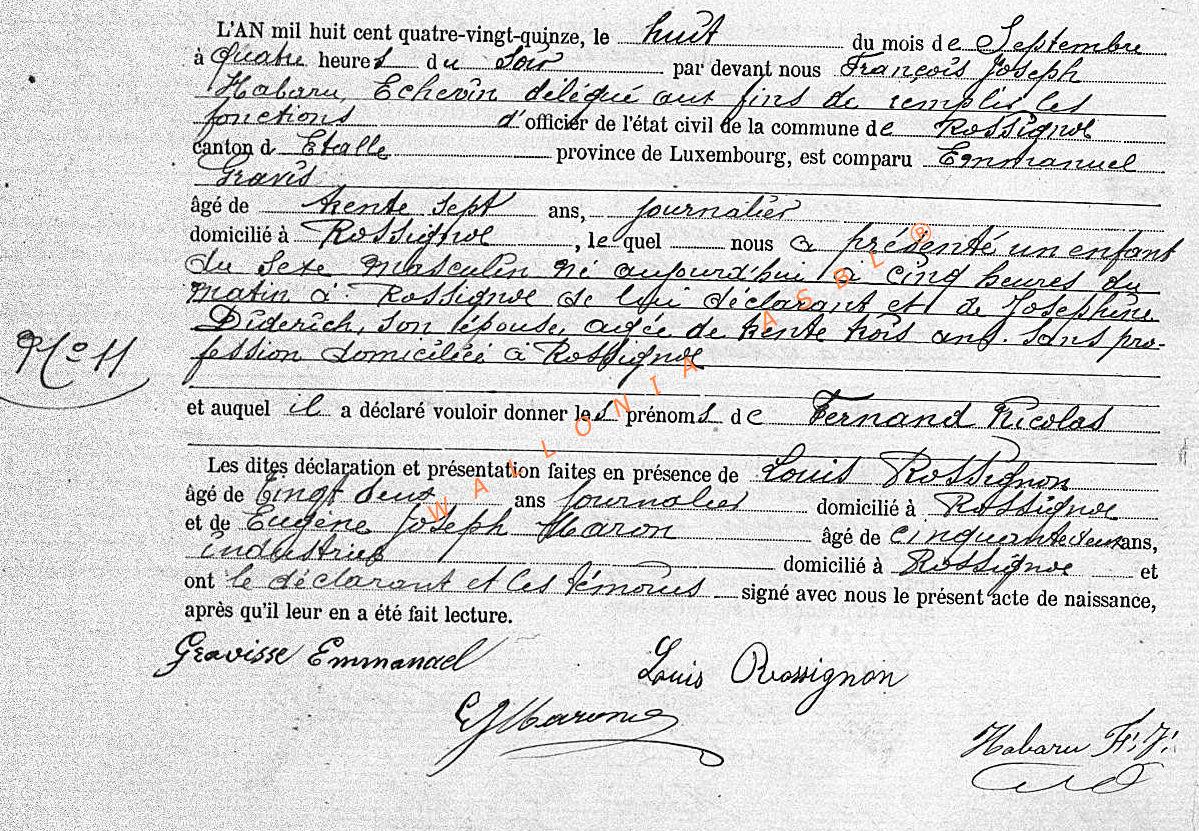 L'AN mil huit cent quatre-vingt-quinze, le huit du mois de Septembre
à quatre heures du soir par devant nous François Joseph
Habaru, Echevin délégué aux fins de remplir les
fonctions d'officier de l'état civil de la commune de Rossignol
canton d Etalle province de Luxembourg, est comparu Emmanuel
Gravis
âgé de trente sept ans, journalier
domicilié à Rossignol, le quel nous a présenté un enfant
du sexe masculin né aujourd'hui à cinq heures du
matin à Rossignol de lui déclarant et de Josephine
Diderich, son épouse, agée de trente trois ans. sans pro-
fession domiciliée à Rossignol
N° 11
et auquel il a déclaré vouloir donner les prénoms de Fernand Nicolas
Les dites déclaration et présentation faites en présence de Louis Rossignon
âgé de vingt deux ans journalier domicilié à Rossignol
et de Eugène Joseph Maron âgé de cinquante deux ans,
industriel domicilié à Rossignol et
ont le déclarant et les témoins signé avec nous le présent acte de naissance,
après qu'il leur en a été fait lecture.
Gravisse Emmanuel
Louis Rossignon
EJMaron
Habaru F. J.
WALLONIA ASBL ®